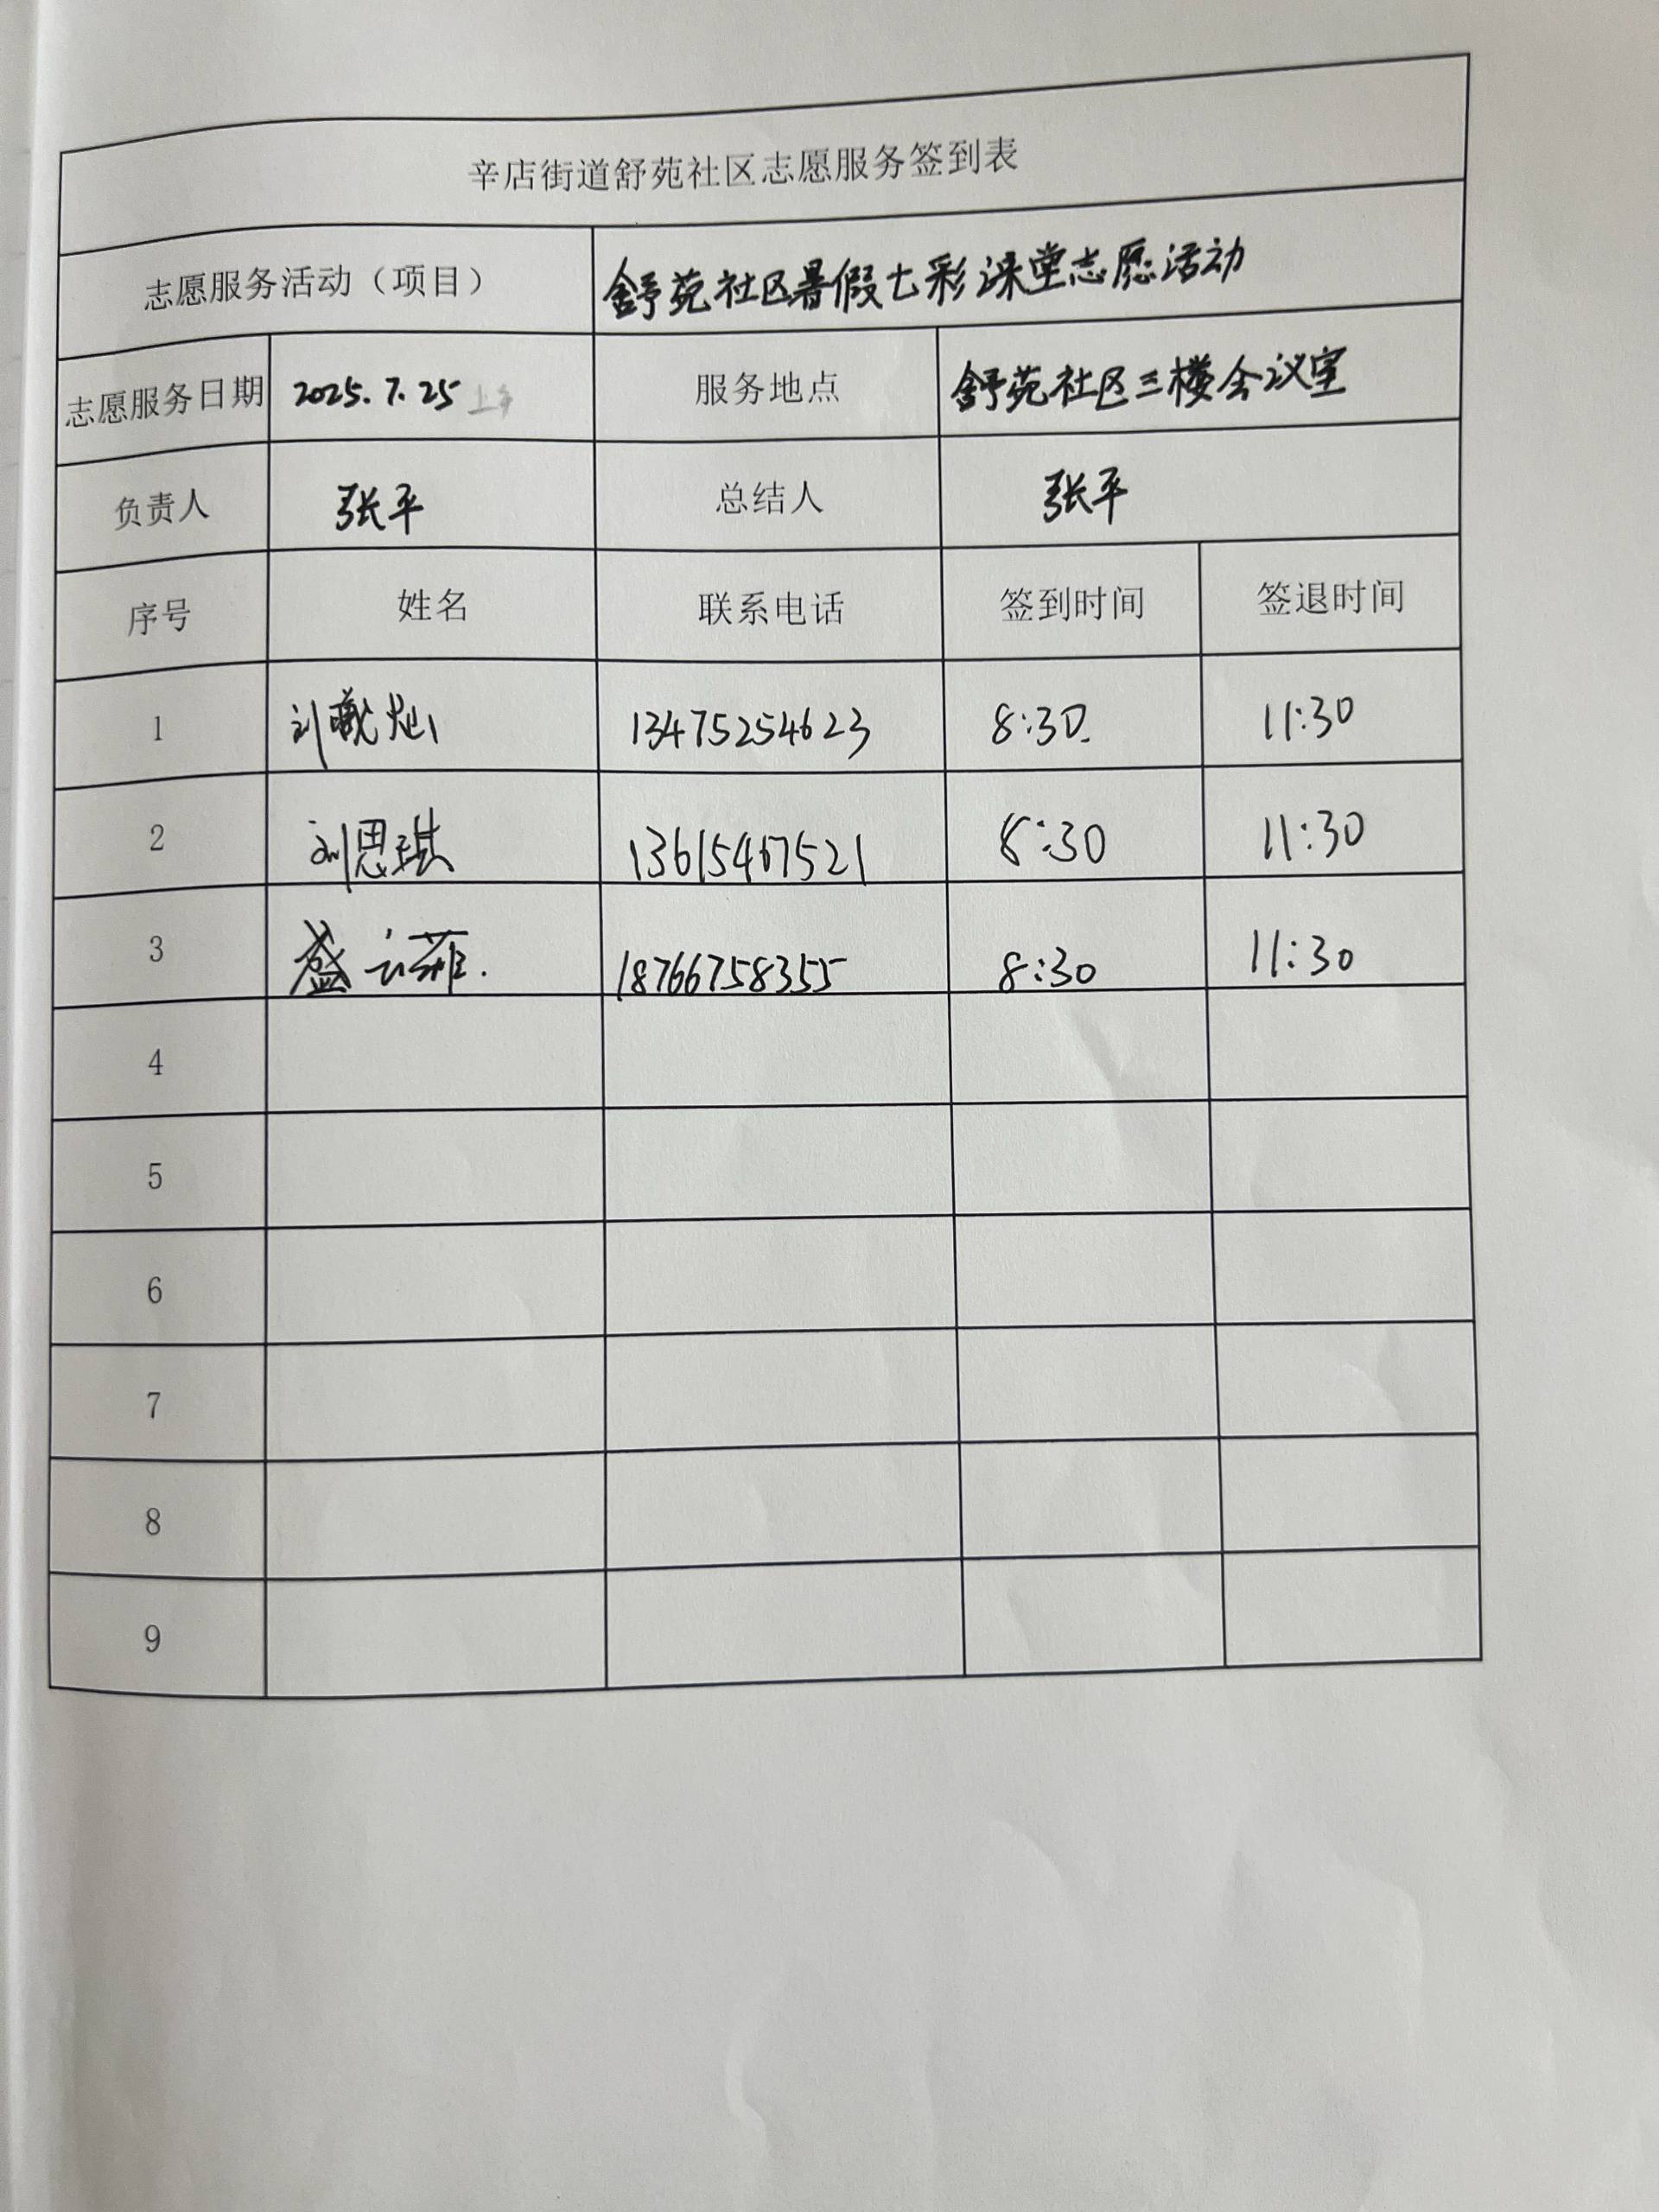 辛店街道舒苑社区志愿服务签到表
志愿服务活动（项目） 舒苑社区暑假七彩课堂志愿活动
志愿服务日期 2025.7.25 上午 服务地点 舒苑社区三楼会议室
负责人 张平 总结人 张平
序号 姓名 联系电话 签到时间 签退时间
1 刘曦灿 13475254623 8:30 11:30
2 刘思琪 13615467521 8:30 11:30
3 盛云菲 18766758355 8:30 11:30
4
5
6
7
8
9